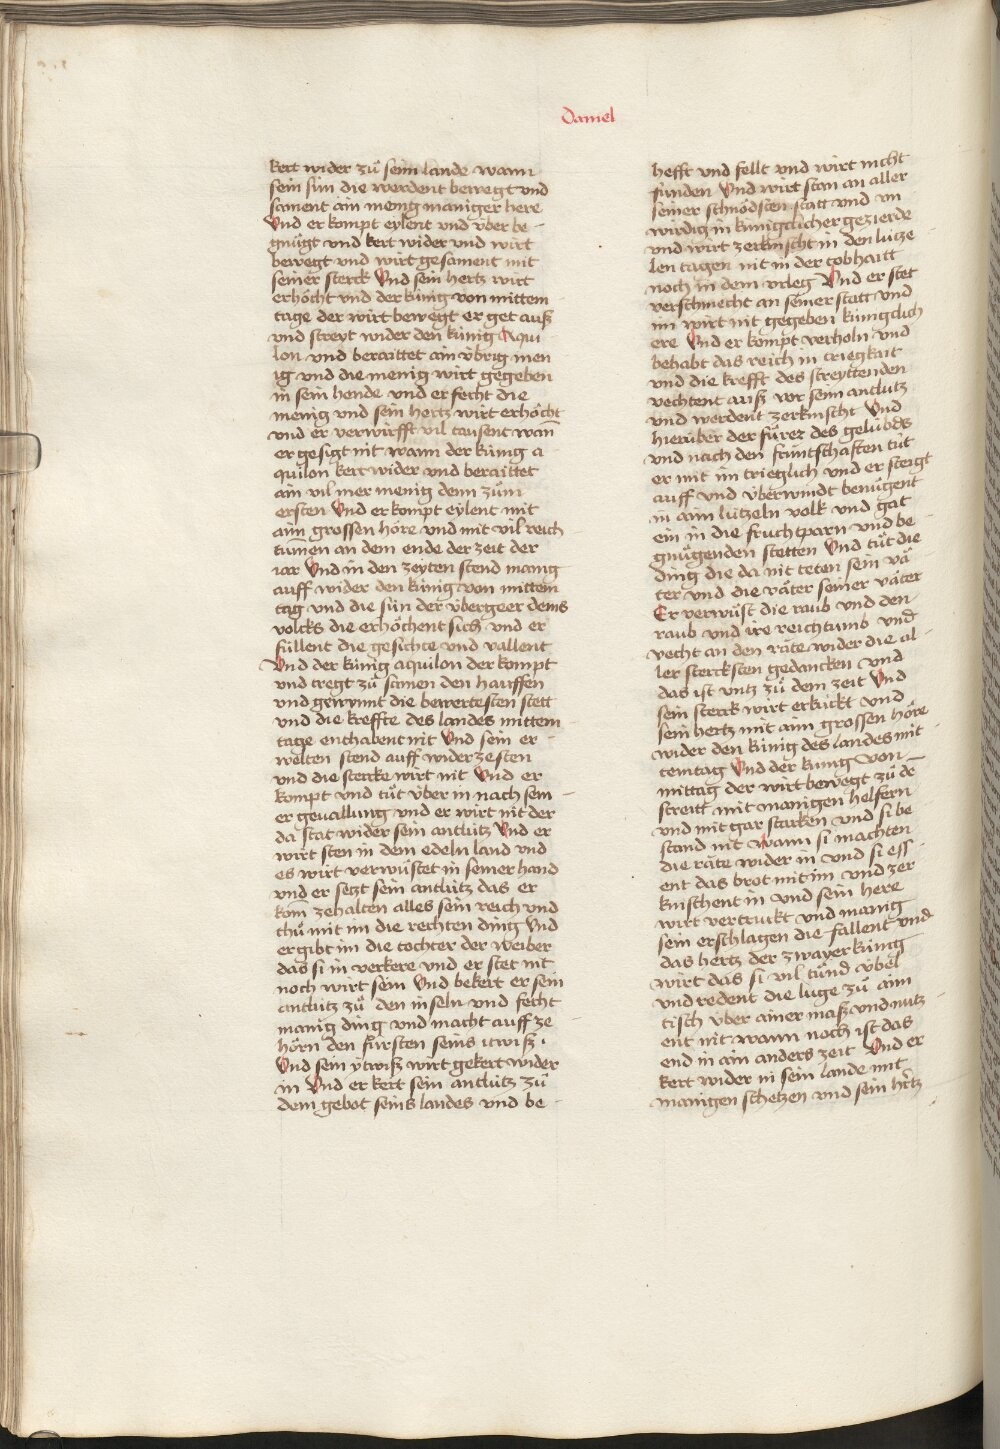 Daniel
kert wider zuͦ seim lande wann
sein sún die werdent bewegt vnd
sament ain menig maniger here
Vnd er kompt eylent vnd v̈ber be-
gnuͤgt vnd kert wider vnd wirt
bewegt vnd wirt gesament mit
seiner sterck Vnd sein hertz wirt
erhoͤcht vnd der kúnig von mittem
tage der wirt bewegt er get auß
vnd streyt wider den kúnig Aqui
lon vnd beraittet ain v̈brig men
ig vnd die menig wirt gegeben
in sein hende vnd er fecht die
menig vnd sein hertz wirt erhoͤcht
vnd er verwirfft vil tausent wañ
er gesigt nit wann der kúnig a
quilon kert wider vnd beraittet
ain vil mer menig denn zuͦm
ersten Vnd er kompt eylent mit
aim grossen hoͤre vnd mit vil reich
tumen an dem ende der zeit der
iar Vnd in den zeyten stend manig
auff wider den kúnig von mittem
tag vnd die sún der v̈bergeer deins
volcks die erhoͤchent sich vnd er
fúllent die gesichte vnd vallent
Vnd der kúnig aquilon der kompt
vnd tregt zuͦ samen den hauffen
vnd gewynnt die bewertesten stett
vnd die kreffte des landes mittem-
tage enthabent nit Vnd sein er-
welten stend auff widerzesten
vnd die stercke wirt nit Vnd er
kompt vnd tuͦt v̈ber in nach sein-
er geuallung vnd er wirt nit der
da stat wider sein antlútz Vnd er
wirt sten in dem edeln land vnd
es wirt verwuͤstet in seiner hand
vnd er setzt sein antlútz das er
kom̄ zehalten alles sein reich vnd
thuͦ mit im die rechten ding Vnd
er gibt im die tochter der weiber
das si in verkere vnd er stet nit
noch wirt sein Vnd bekert er sein
antlútz zuͦ den inseln vnd fecht
manig ding vnd macht auff ze
hoͤrn den fúrsten seins itwiß.
Vnd sein ẏtwiß wirt gekert wider
in Vnd er kert sein antlútz zuͦ
dem gebot seins landes vnd be-
hefft vnd fellt vnd wirt nicht
funden Vnd wirt stan an aller
seiner schnoͤdsten statt vnd vn
wirdig in kúnigclicher gezierde
vnd wirt zerknischt in den lútze
len tagen nit in der tobhaitt
noch in dem vrleg Vnd er stet
verschmecht an seiner statt vnd
im wirt nit gegeben kúnigclich
ere Vnd er kompt verholn vnd
behabt das reich in triegkait
vnd die krefft des streyttenden
vechtent auß vor seim antlutz
vnd werdent zerknischt Vnd
hierúber der fuͤrer des gelúbds
vnd nach den frúntschaften tuͦt
er mit im trieglich vnd er steigt
auff vnd v̈berwindt benuͤgent
in aim lútzeln volk vnd gat
ein in die fruchtparn vnd be-
gnuͤgenden stetten Vnd tuͦt die
ding die da nit teten sein vaͤ
ter vnd die vaͤter seiner vaͤter
Er verwuͤst die raub vnd den
raub vnd ire reichtumb vnd
vecht an den raͤte wider die al-
ler stercksten gedancken vnd
das ist vntz zuͦ dem zeit Vnd
sein sterck wirt erkúckt vnd
sein hertz mit aim grossen hoͤre
wider den kúnig des landes mit
temtag Vnd der kúnig von-
mittag der wirt bewegt zuͦ dē
streitt mit manigen helfern
vnd mit gar starken vnd si be
stand nit wann si machten
die raͤte wider in vnd si ess-
ent das brot mit im vnd zer
knischent in vnd sein here
wirt vertruckt vnd manig
sein erschlagen die fallent vnd
das hertz der zwayer kúnig
wirt das si vil túnd v̈bel
vnd redent die luge zuͦ aim
tisch v̈ber ainer maß vnd nutz-
ent nit wann noch ist das
end in ain anders zeit Vnd er
kert wider in sein lande mit
manigen schetzen vnd sein hr̄tz